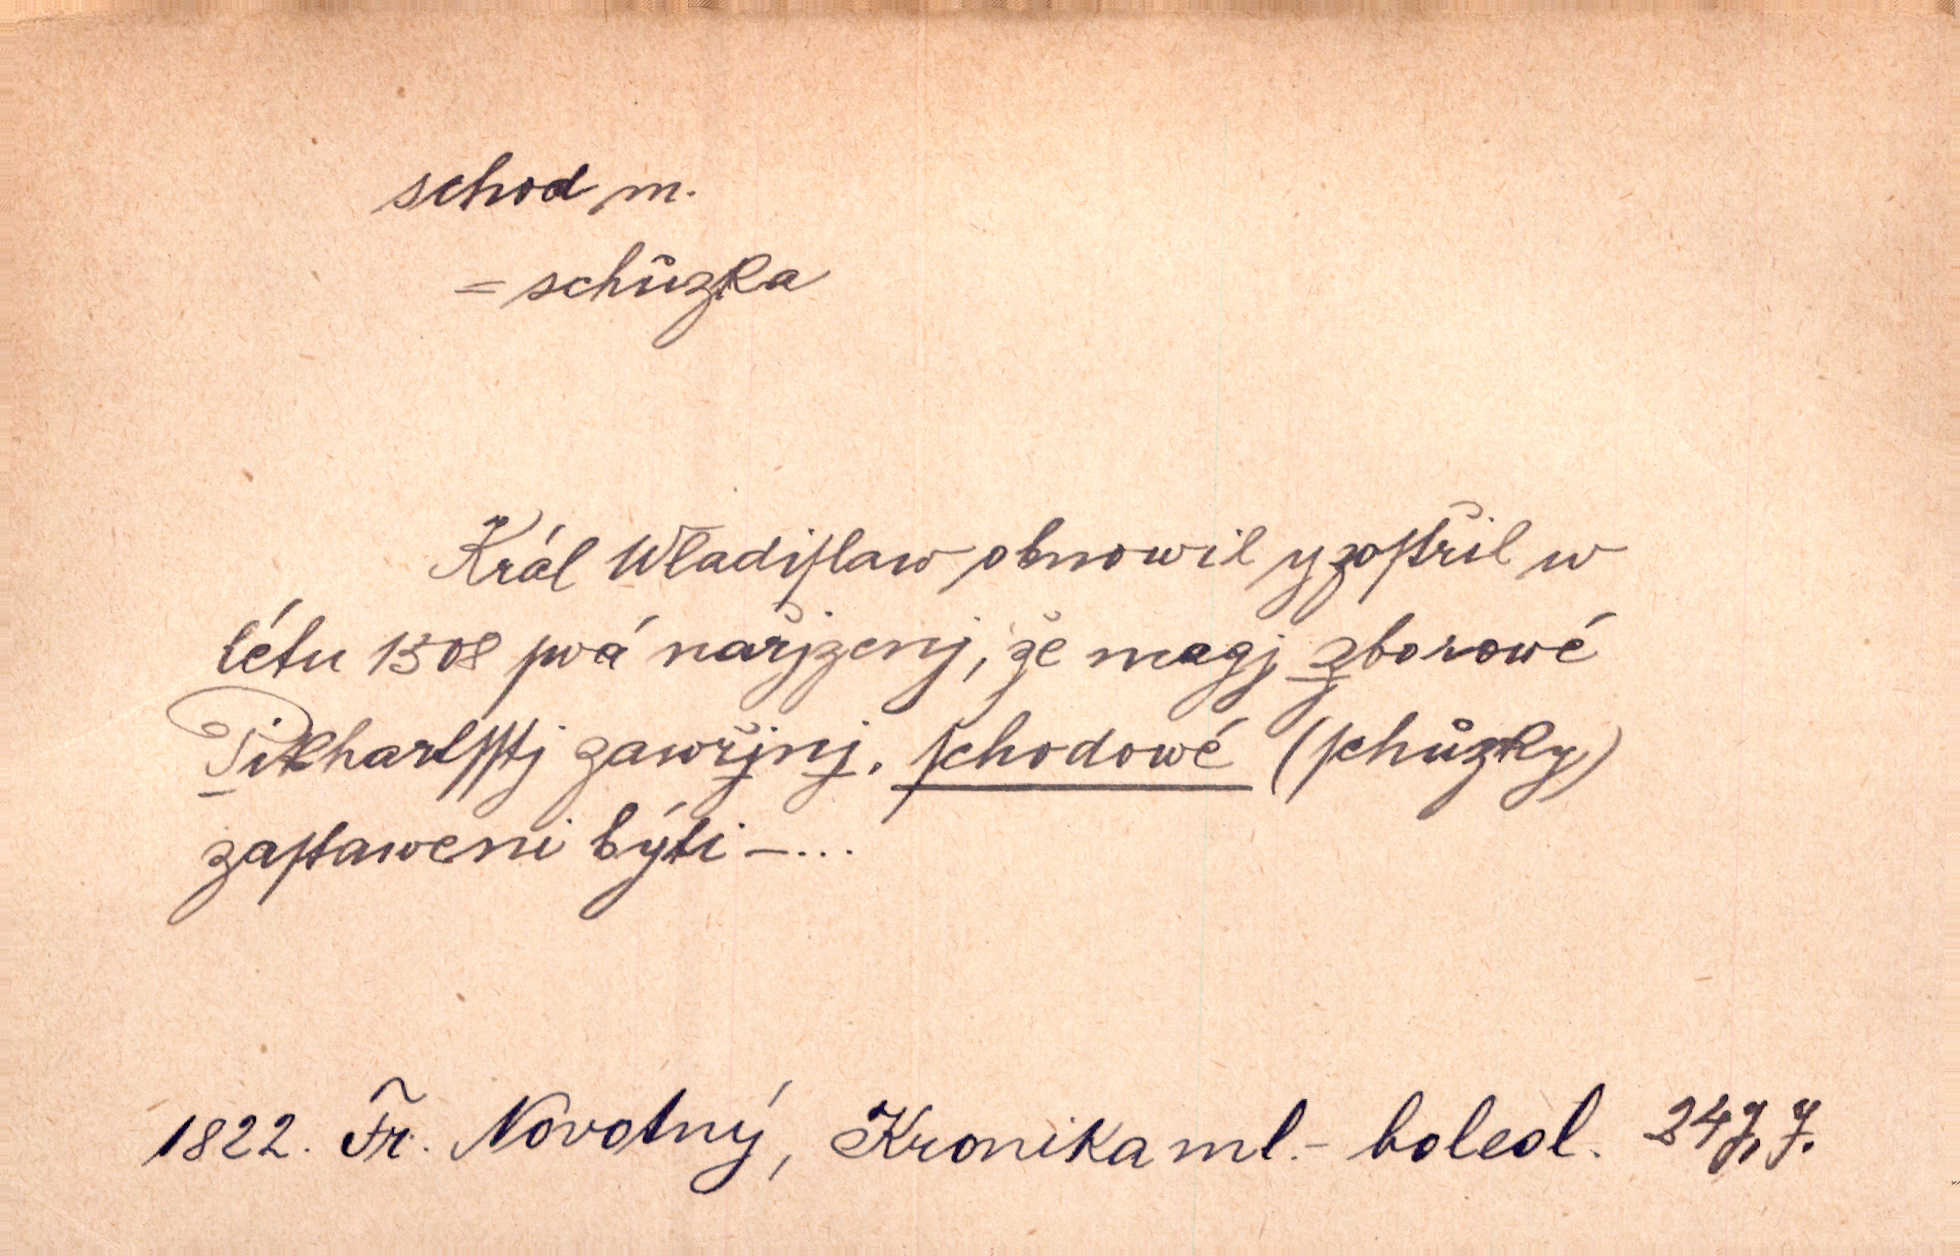 schod m.
= schůzka
Král Wladiſlaw obnowil y zoſtřil w
létu 1508 ſwá nařjzenj, že magj zborowé
Pikhartſſtj zawřjnj, ſchodowé (ſchůzky)
zaſtaweni býti – ...
1822. Fr. Novotný, Kronika ml. - bolesl. 247, 7.